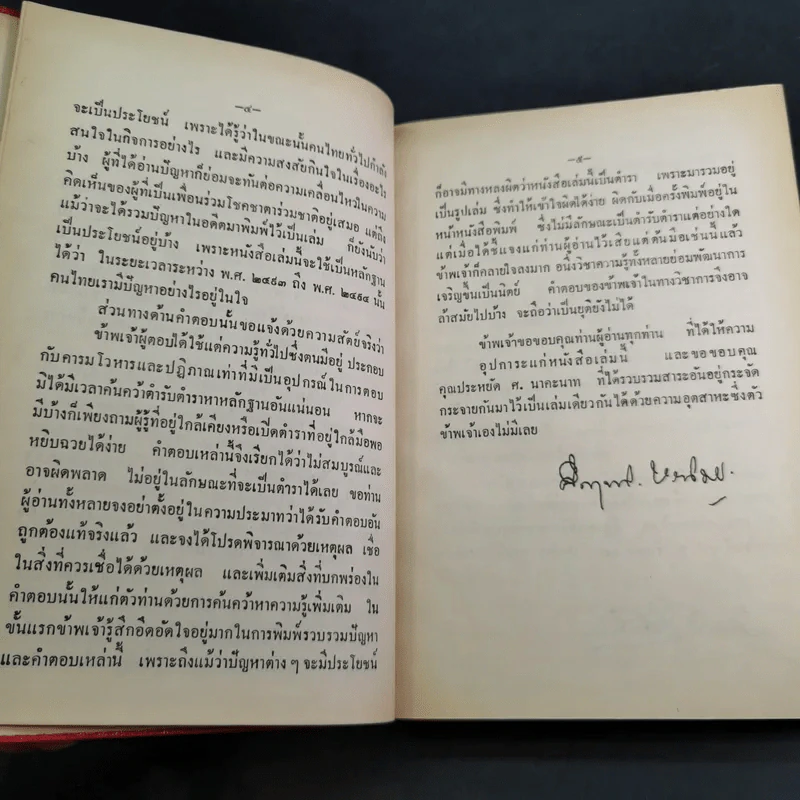 —๔—
จะเป็นประโยชน์ เพราะได้รู้ว่าในขณะนั้นคนไทยทั่วไปกำลัง
สนใจในกิจการอย่างไร และมีความสงสัยกินใจในเรื่องอะไร
บ้าง ผู้ที่ได้อ่านปัญหาก็ย่อมจะทันต่อความเคลื่อนไหวในความ
คิดเห็นของผู้ที่เป็นเพื่อนร่วมโชคชาตาร่วมชาติอยู่เสมอ แต่ถึง
แม้ว่าจะได้รวมปัญหาในอดีตมาพิมพ์ไว้เป็นเล่ม ก็ยังนับว่า
เป็นประโยชน์อยู่บ้าง เพราะหนังสือเล่มนี้จะใช้เป็นหลักฐาน
ได้ว่า ในระยะเวลาระหว่าง พ.ศ. ๒๔๙๓ ถึง พ.ศ. ๒๔๙๔ นั้น
คนไทยเรามีปัญหาอย่างไรอยู่ในใจ
ส่วนทางด้านคำตอบนั้นขอแจ้งด้วยความสัตย์จริงว่า
ข้าพเจ้าผู้ตอบได้ใช้แต่ความรู้ทั่วไปซึ่งตนมีอยู่ ประกอบ
กับคารมโวหารและปฏิภาณเท่าที่มีเป็นอุปกรณ์ในการตอบ
มิได้มีเวลาค้นคว้าตำรับตำราหาหลักฐานอันแน่นอน หากจะ
มีบ้างก็เพียงถามผู้รู้ที่อยู่ใกล้เคียงหรือเปิดตำราที่อยู่ใกล้มือพอ
หยิบฉวยได้ง่าย คำตอบเหล่านี้จึงเรียกได้ว่าไม่สมบูรณ์และ
อาจผิดพลาด ไม่อยู่ในลักษณะที่จะเป็นตำราได้เลย ขอท่าน
ผู้อ่านทั้งหลายจงอย่าตั้งอยู่ในความประมาทว่าได้รับคำตอบอัน
ถูกต้องแท้จริงแล้ว และจงได้โปรดพิจารณาด้วยเหตุผล เชื่อ
ในสิ่งที่ควรเชื่อได้ด้วยเหตุผล และเพิ่มเติมสิ่งที่บกพร่องใน
คำตอบนั้นให้แก่ตัวท่านด้วยการค้นคว้าหาความรู้เพิ่มเติม ใน
ขั้นแรกข้าพเจ้ารู้สึกอึดอัดใจอยู่มากในการพิมพ์รวบรวมปัญหา
และคำตอบเหล่านี้ เพราะถึงแม้ว่าปัญหาต่าง ๆ จะมีประโยชน์
—๕—
ก็อาจมีทางหลงผิดว่าหนังสือเล่มนี้เป็นตำรา เพราะมารวมอยู่
เป็นรูปเล่ม ซึ่งทำให้เข้าใจผิดได้ง่าย ผิดกับเมื่อครั้งพิมพ์อยู่ใน
หน้าหนังสือพิมพ์ ซึ่งไม่มีลักษณะเป็นตำรับตำราแต่อย่างใด
แต่เมื่อได้ชี้แจงแก่ท่านผู้อ่านไว้เสียแต่ต้นมือเช่นนี้แล้ว
ข้าพเจ้าก็คลายใจลงมาก อนึ่งวิชาความรู้ทั้งหลายย่อมพัฒนาการ
เจริญขึ้นเป็นนิตย์ คำตอบของข้าพเจ้าในทางวิชาการจึงอาจ
ล้าสมัยไปบ้าง จะถือว่าเป็นยุติยังไม่ได้
ข้าพเจ้าขอขอบคุณท่านผู้อ่านทุกท่าน ที่ได้ให้ความ
อุปการะแก่หนังสือเล่มนี้ และขอขอบคุณ
คุณประหยัด ศ. นาคะนาท ที่ได้รวบรวมสาระอันอยู่กระจัด
กระจายกันมาไว้เป็นเล่มเดียวกันได้ด้วยความอุตสาหะซึ่งตัว
ข้าพเจ้าเองไม่มีเลย